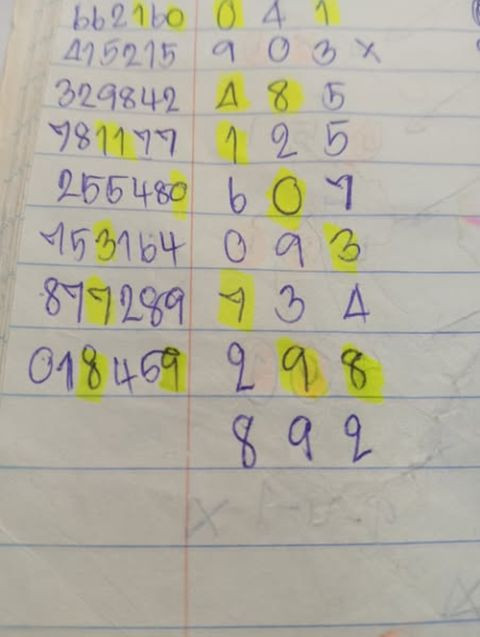 662160 0 4 1
415215 9 0 3 x
329842 4 8 5
781177 1 2 5
255480 6 0 7
753164 0 9 3
877289 7 3 4
018459 2 9 8
8 9 2